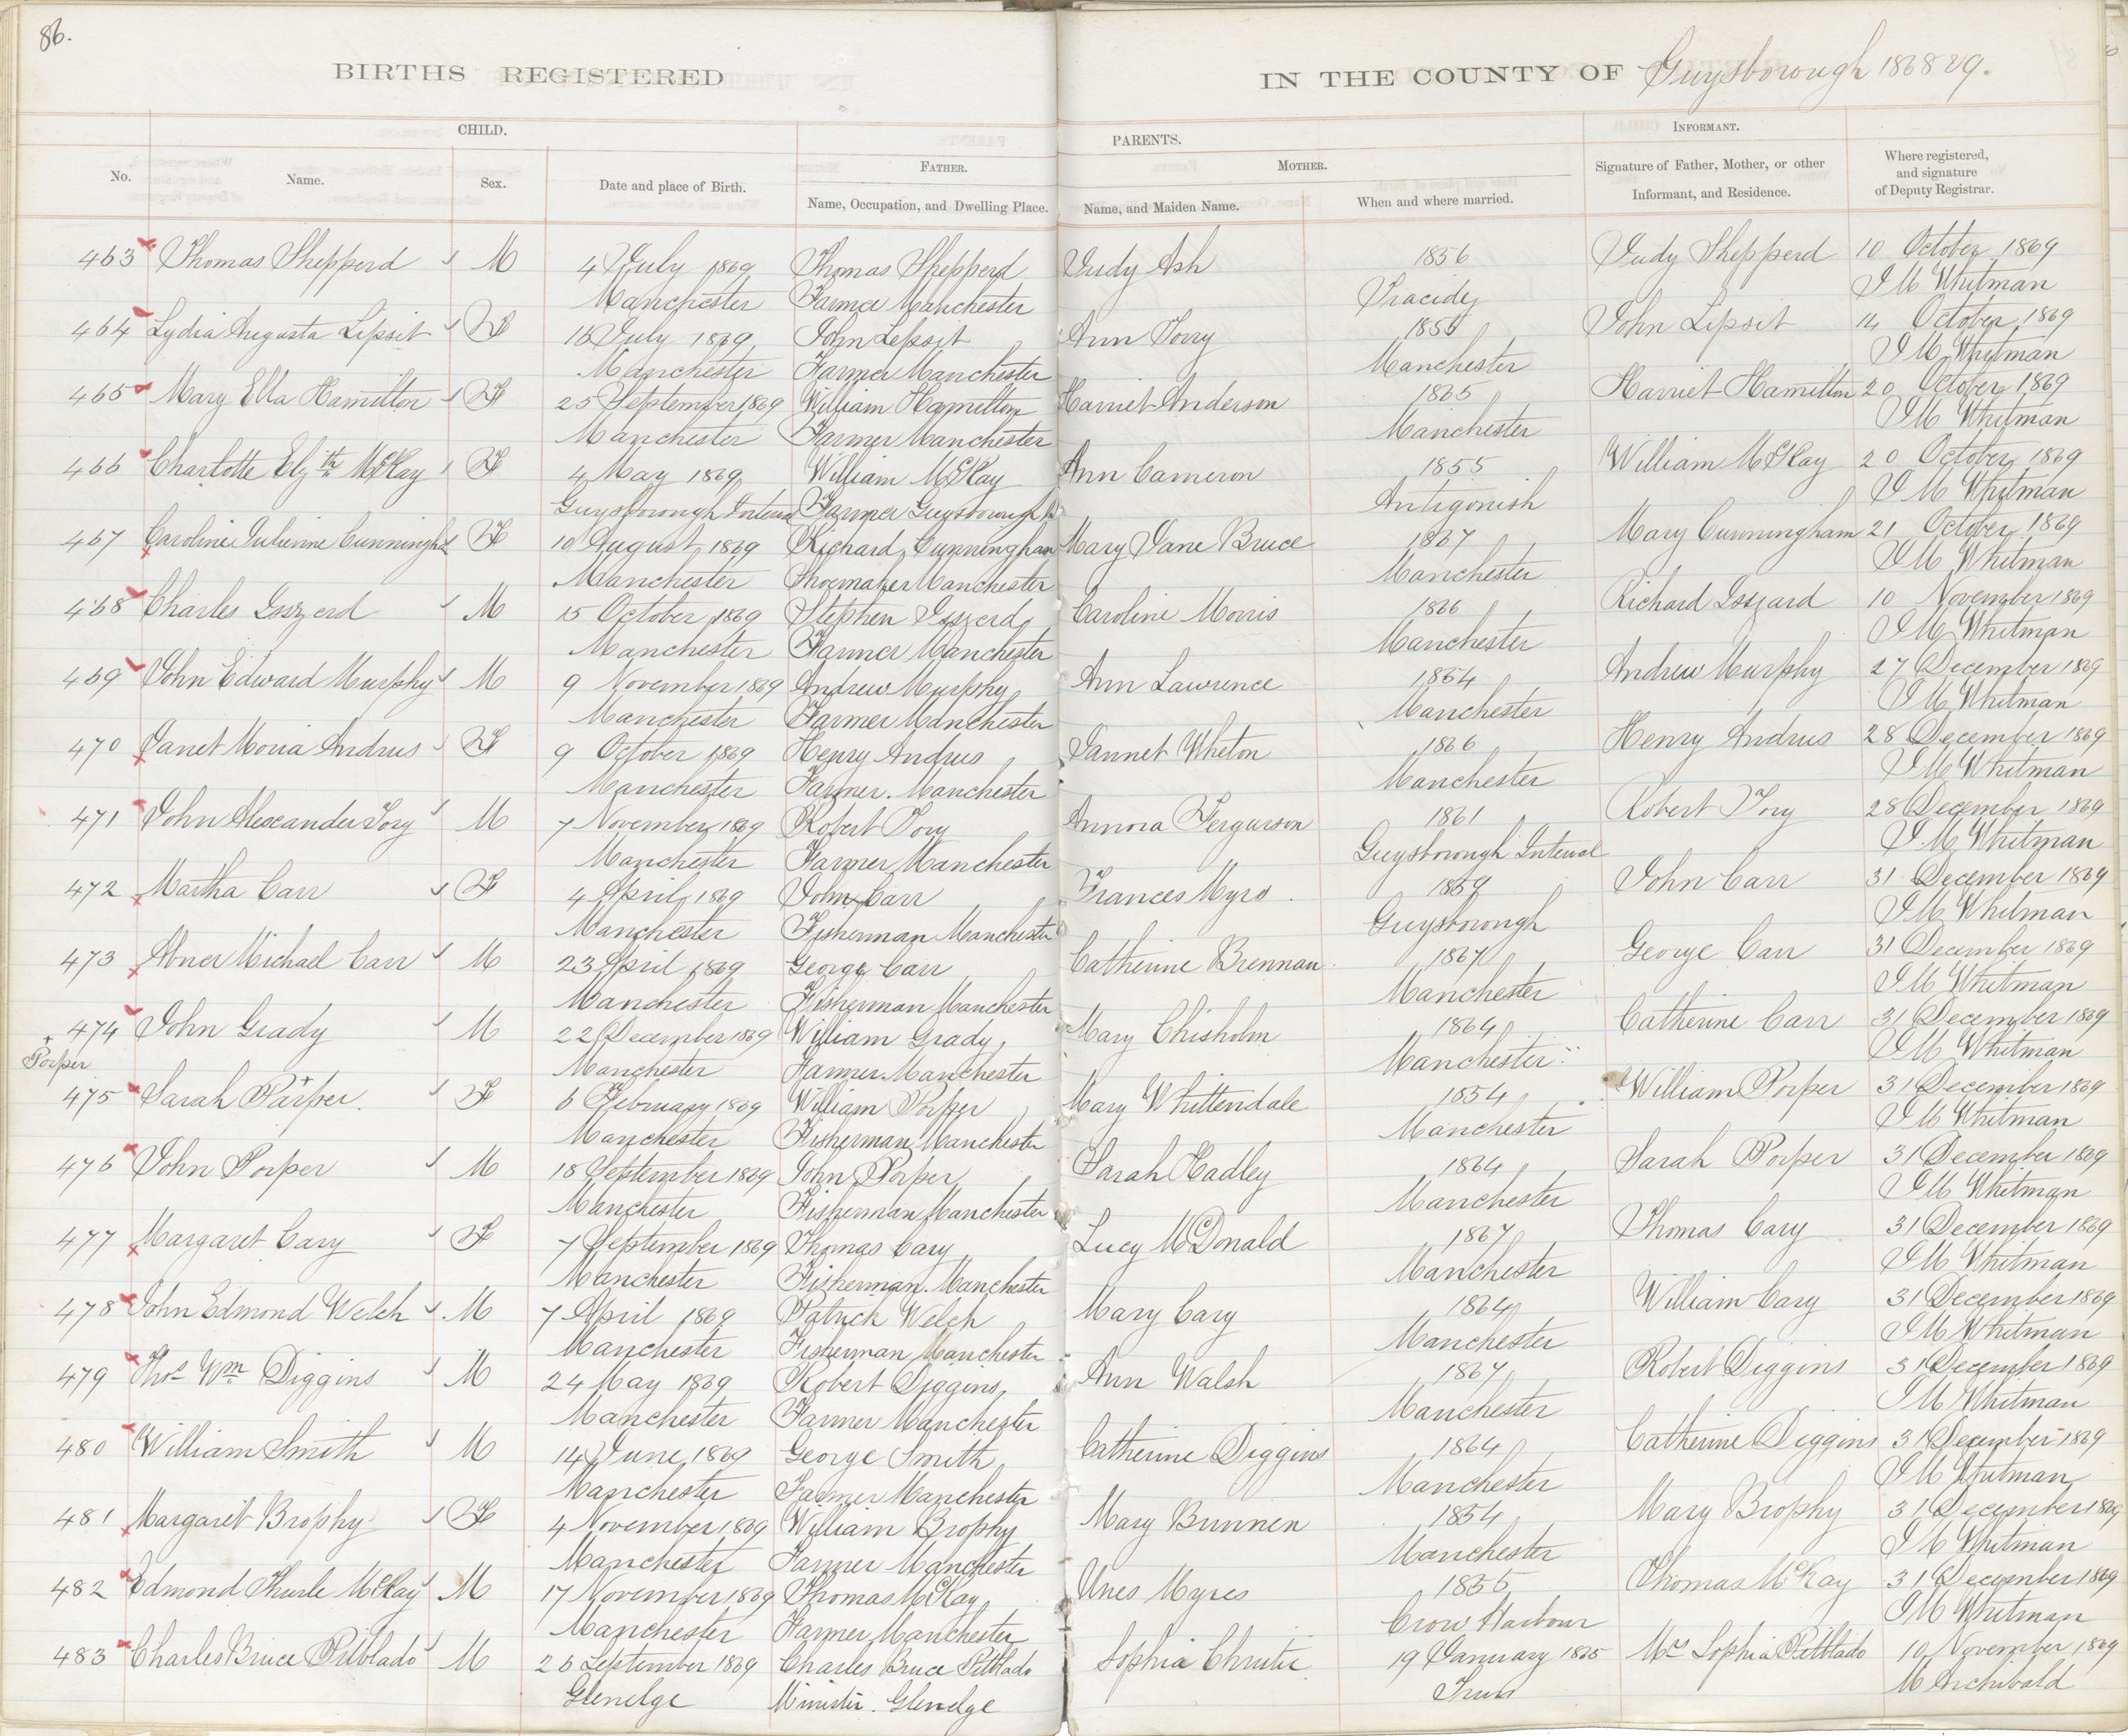 86.
BIRTHS REGISTERED IN THE COUNTY OF Guysborough 1868 & 9.
CHILD. PARENTS. INFORMANT.
No. Name. Sex. Date and place of Birth. FATHER. Name, Occupation, and Dwelling Place. MOTHER. Name, and Maiden Name. When and where married. Signature of Father, Mother, or other Informant, and Residence. Where registered, and signature of Deputy Registrar.
463 Thomas Shepperd M 4 July 1869 Thomas Shepperd Judy Ash 1856 Judy Shepperd 10 October 1869
Manchester Farmer Manchester Tracidy J M Whitman
464 Lydia Augusta Lipsit F 16 July 1869 John Lipsit Ann Torry 1856 John Lipsit 14 October 1869
Manchester Farmer Manchester Manchester J M Whitman
465 Mary Ella Hamilton F 25 September 1869 William Hamilton Harriet Anderson 1865 Harriet Hamilton 20 October 1869
Manchester Farmer Manchester Manchester J M Whitman
466 Charlotte Elizth McKay F 4 May 1869 William McKay Ann Cameron 1855 William McKay 20 October 1869
Guysborough Interval Farmer Guysborough In Antigonish J M Whitman
467 Caroline Julienne Cunningham F 10 August 1869 Richard Cunningham Mary Jane Bruce 1867 Mary Cunningham 21 October 1869
Manchester Shoemaker Manchester Manchester J M Whitman
468 Charles Isszerd M 15 October 1869 Stephen Isszerd Caroline Morris 1866 Richard Isszard 10 November 1869
Manchester Farmer Manchester Manchester J M Whitman
469 John Edward Murphy M 9 November 1869 Andrew Murphy Ann Lawrence 1854 Andrew Murphy 27 December 1869
Manchester Farmer Manchester Manchester J M Whitman
470 Janet Moria Andrus F 9 October 1869 Henry Andrus Jannet Wheton 1866 Henry Andrus 28 December 1869
Manchester Farmer. Manchester Manchester J M Whitman
471 John Alexander Tory M 7 November 1869 Robert Tory Annora Fergurson 1861 Robert Tory 28 December 1869
Manchester Farmer Manchester Guysborough Interval J M Whitman
472 Martha Carr F 4 April 1869 John Carr Frances Myro 1859 John Carr 31 December 1869
Manchester Fisherman Manchester Guysborough J M Whitman
473 Abner Michael Carr M 23 April 1869 George Carr Catherine Brennan 1867 George Carr 31 December 1869
Manchester Fisherman Manchester Manchester J M Whitman
474 John Grady M 22 December 1869 William Grady Mary Chisholm 1864 Catherine Carr 31 December 1869
+ Porper
Manchester Farmer Manchester Manchester J M Whitman
475 Sarah Parper F 6 February 1869 William Porper Mary Whittendale 1854 William Porper 31 December 1869
Manchester Fisherman Manchester Manchester J M Whitman
476 John Porper M 18 September 1869 John Porper Sarah Hadley 1864 Sarah Porper 31 December 1869
Manchester Fisherman Manchester Manchester J M Whitman
477 Margaret Cary F 7 September 1869 Thomas Cary Lucy McDonald 1867 Thomas Cary 31 December 1869
Manchester Fisherman Manchester Manchester J M Whitman
478 John Edmond Welch M 7 April 1869 Patrick Welch Mary Cary 1864 William Cary 31 December 1869
Manchester Fisherman Manchester Manchester J M Whitman
479 Thos Wm Diggins M 24 May 1869 Robert Diggins Ann Walsh 1867 Robert Diggins 31 December 1869
Manchester Farmer Manchester Manchester J M Whitman
480 William Smith M 14 June 1869 George Smith Catherine Diggins 1864 Catherine Diggins 31 December 1869
Manchester Farmer Manchester Manchester J M Whitman
481 Margaret Brophy F 4 November 1869 William Brophy Mary Brunnen 1854 Mary Brophy 31 December 1869
Manchester Farmer Manchester Manchester J M Whitman
482 Edmond Thurle McKay M 17 November 1869 Thomas McKay Unes Myres 1855 Thomas McKay 31 December 1869
Manchester Farmer Manchester Crow Harbour J M Whitman
483 Charles Bruce Pitblado M 26 September 1869 Charles Bruce Pitblado Sophia Christie 19 January 1865 Mrs Sophia Pitblado 10 November 1869
Glenelge Minister. Glenelge Truro M Archibald